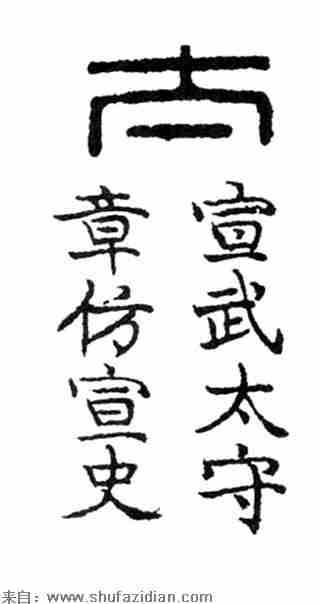 太
宣武太守
章仿宣史
来自：www.shufazidian.com